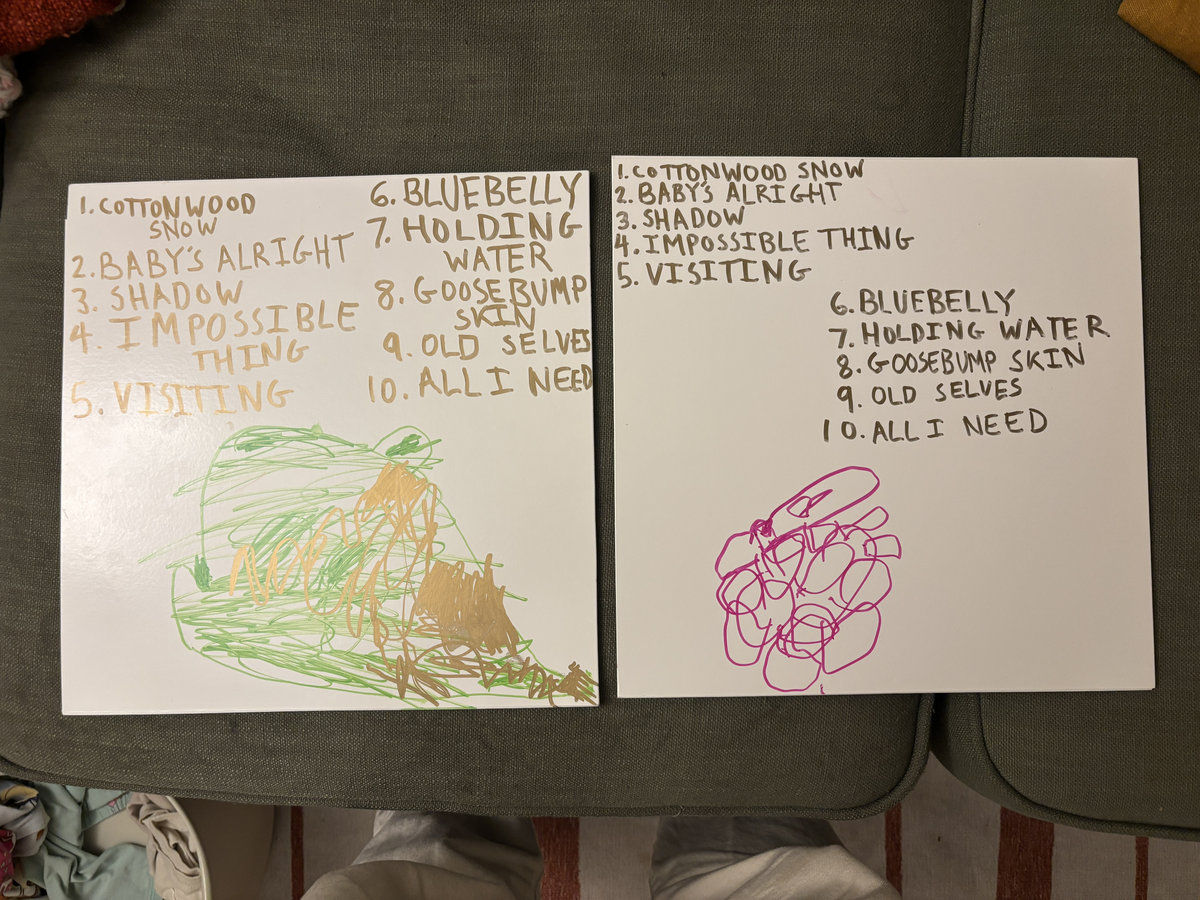 1. COTTONWOOD
SNOW
2. BABY'S ALRIGHT
3. SHADOW
4. IMPOSSIBLE
THING
5. VISITING
6. BLUEBELLY
7. HOLDING
WATER
8. GOOSEBUMP
SKIN
9. OLD SELVES
10. ALL I NEED
1. COTTONWOOD SNOW
2. BABY'S ALRIGHT
3. SHADOW
4. IMPOSSIBLE THING
5. VISITING
6. BLUEBELLY
7. HOLDING WATER
8. GOOSEBUMP SKIN
9. OLD SELVES
10. ALL I NEED